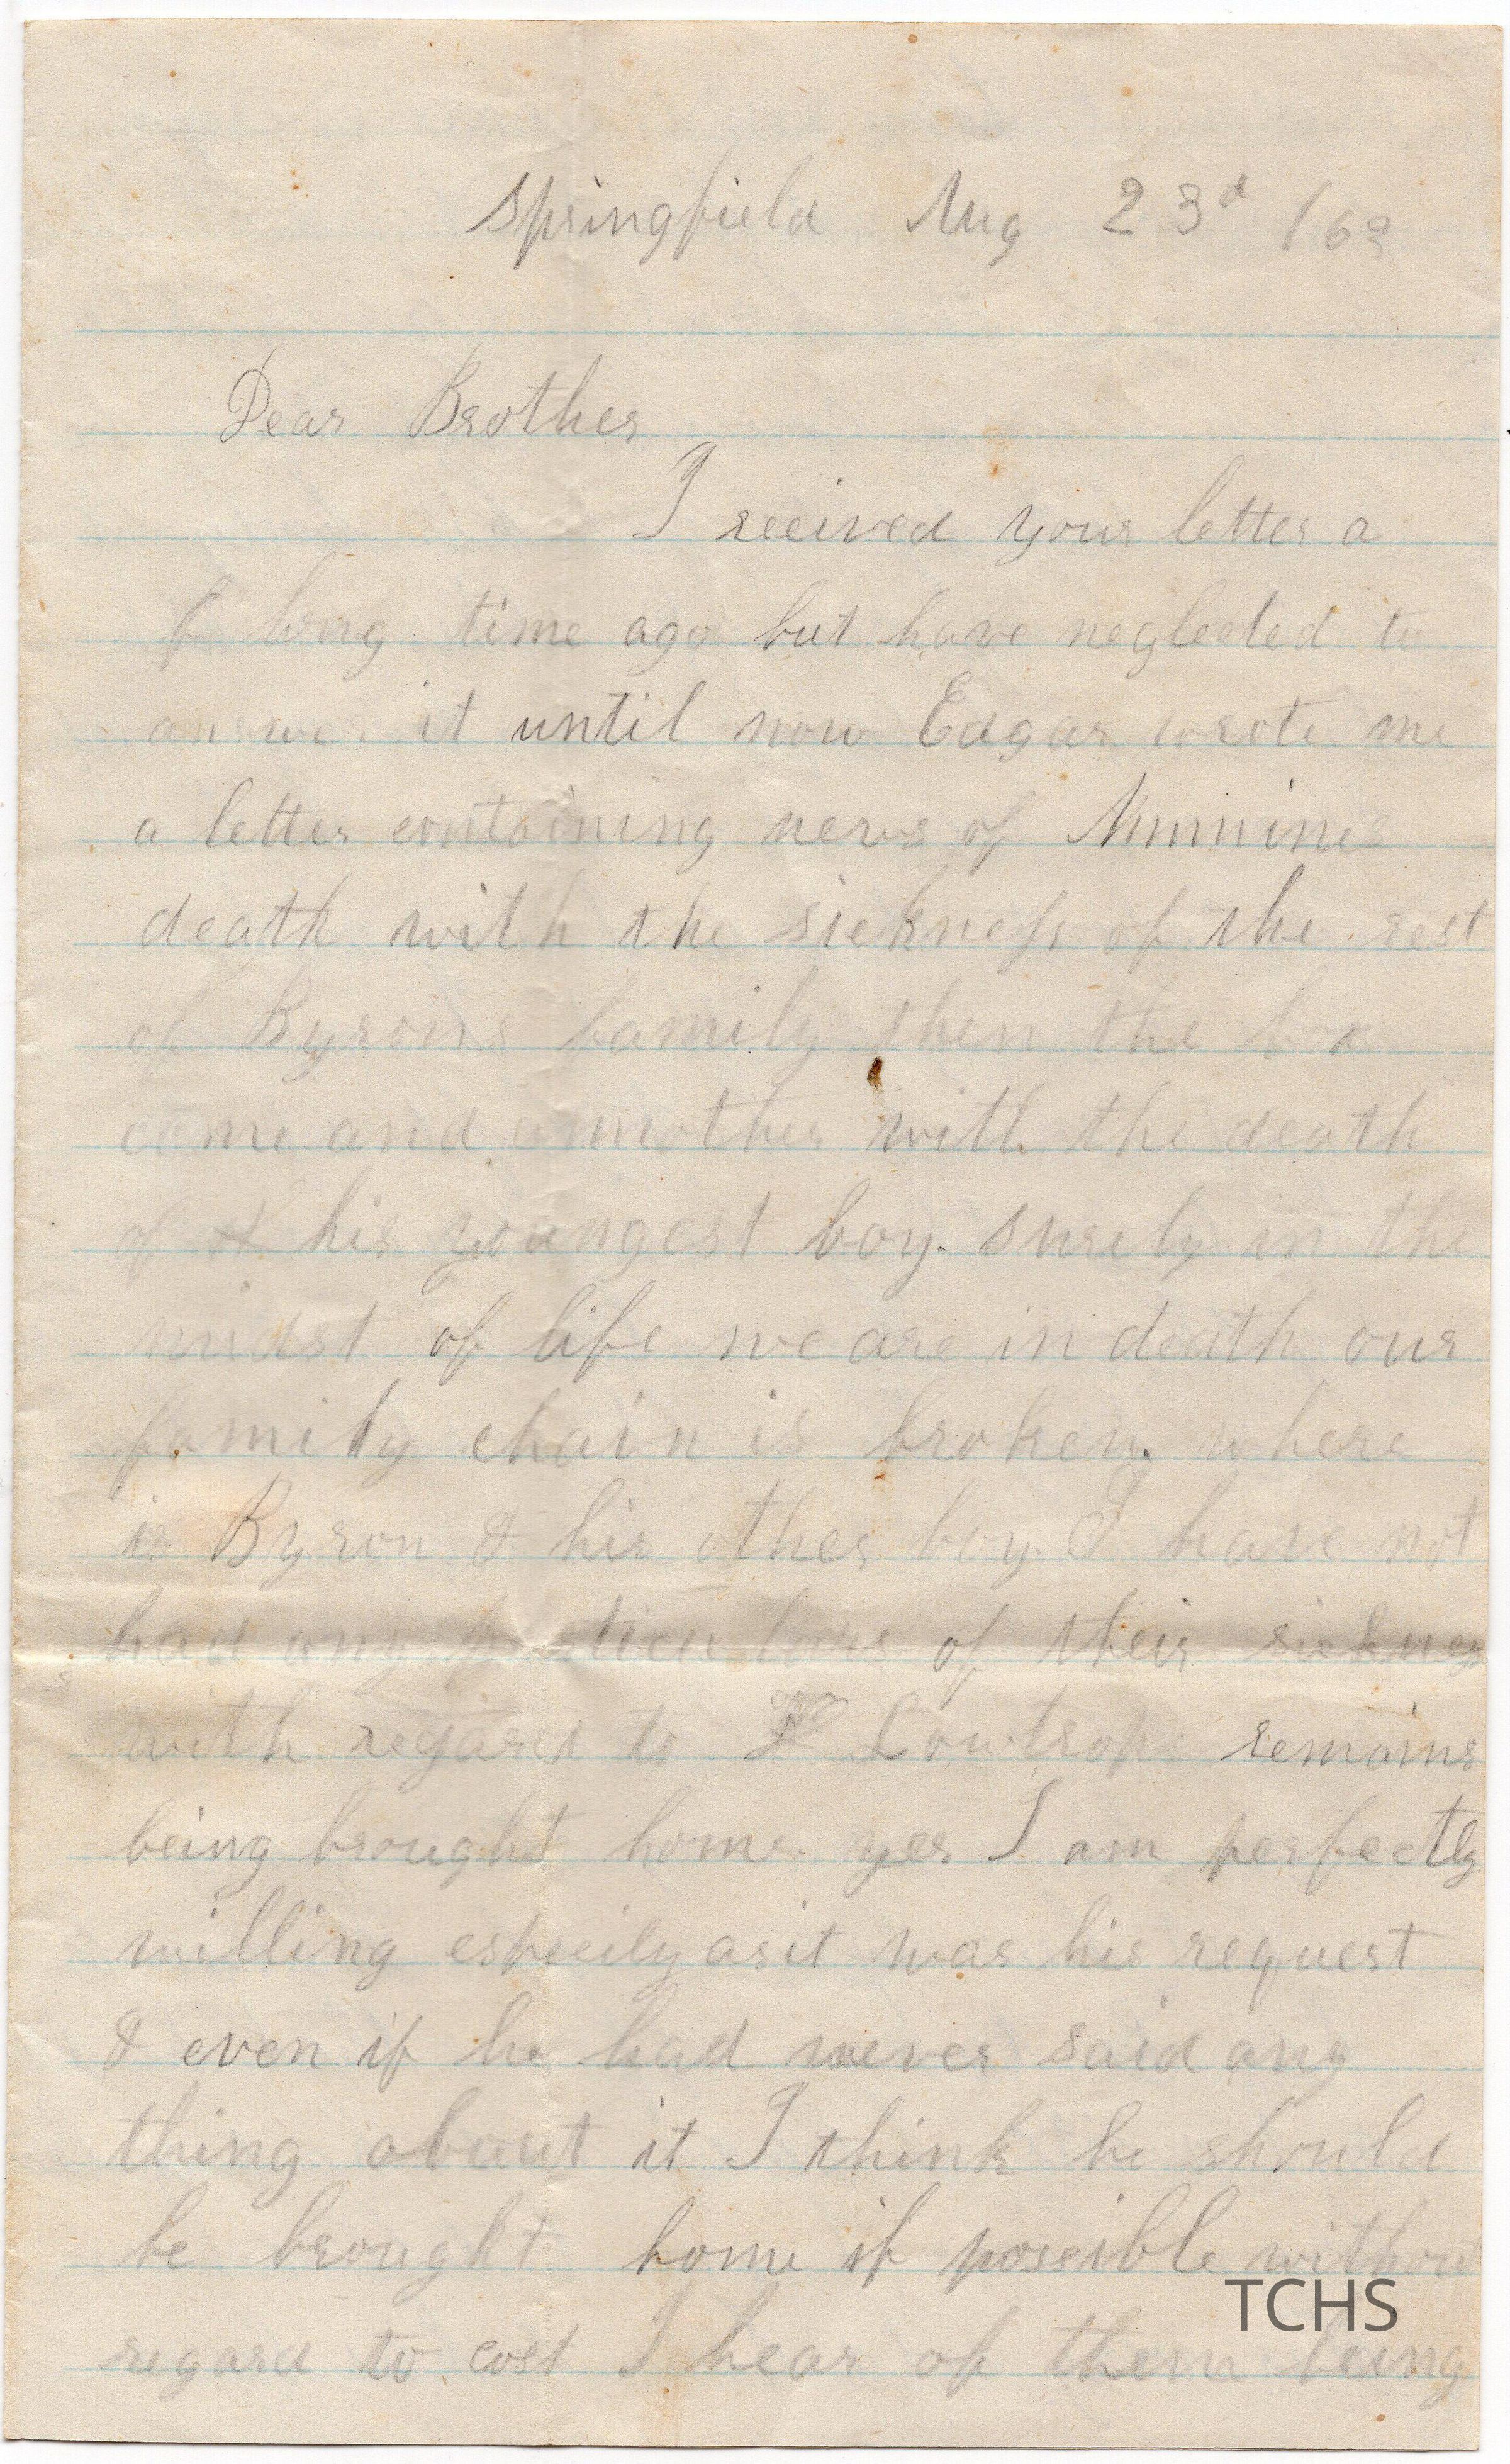 Springfield Aug 23d /63
Dear Brother
I received your letter a
long time ago but have neglected to
answer it until now Edgar wrote me
a letter containing news of
death with the sickness of the rest
of Byrons family then the box
come and annother with the death
of his youngest boy. surely in the
midst of life we are in death our
family chain is broken. where
is Byron & his other boy. I have not
had any particulars of their sickness
with regard to remains
being brought home. yes I am perfectly
willing especily as it was his request
& even if he had never said any
thing about it I think he should
be brought home if possible without
TCHS
regard to cost I hear of them being